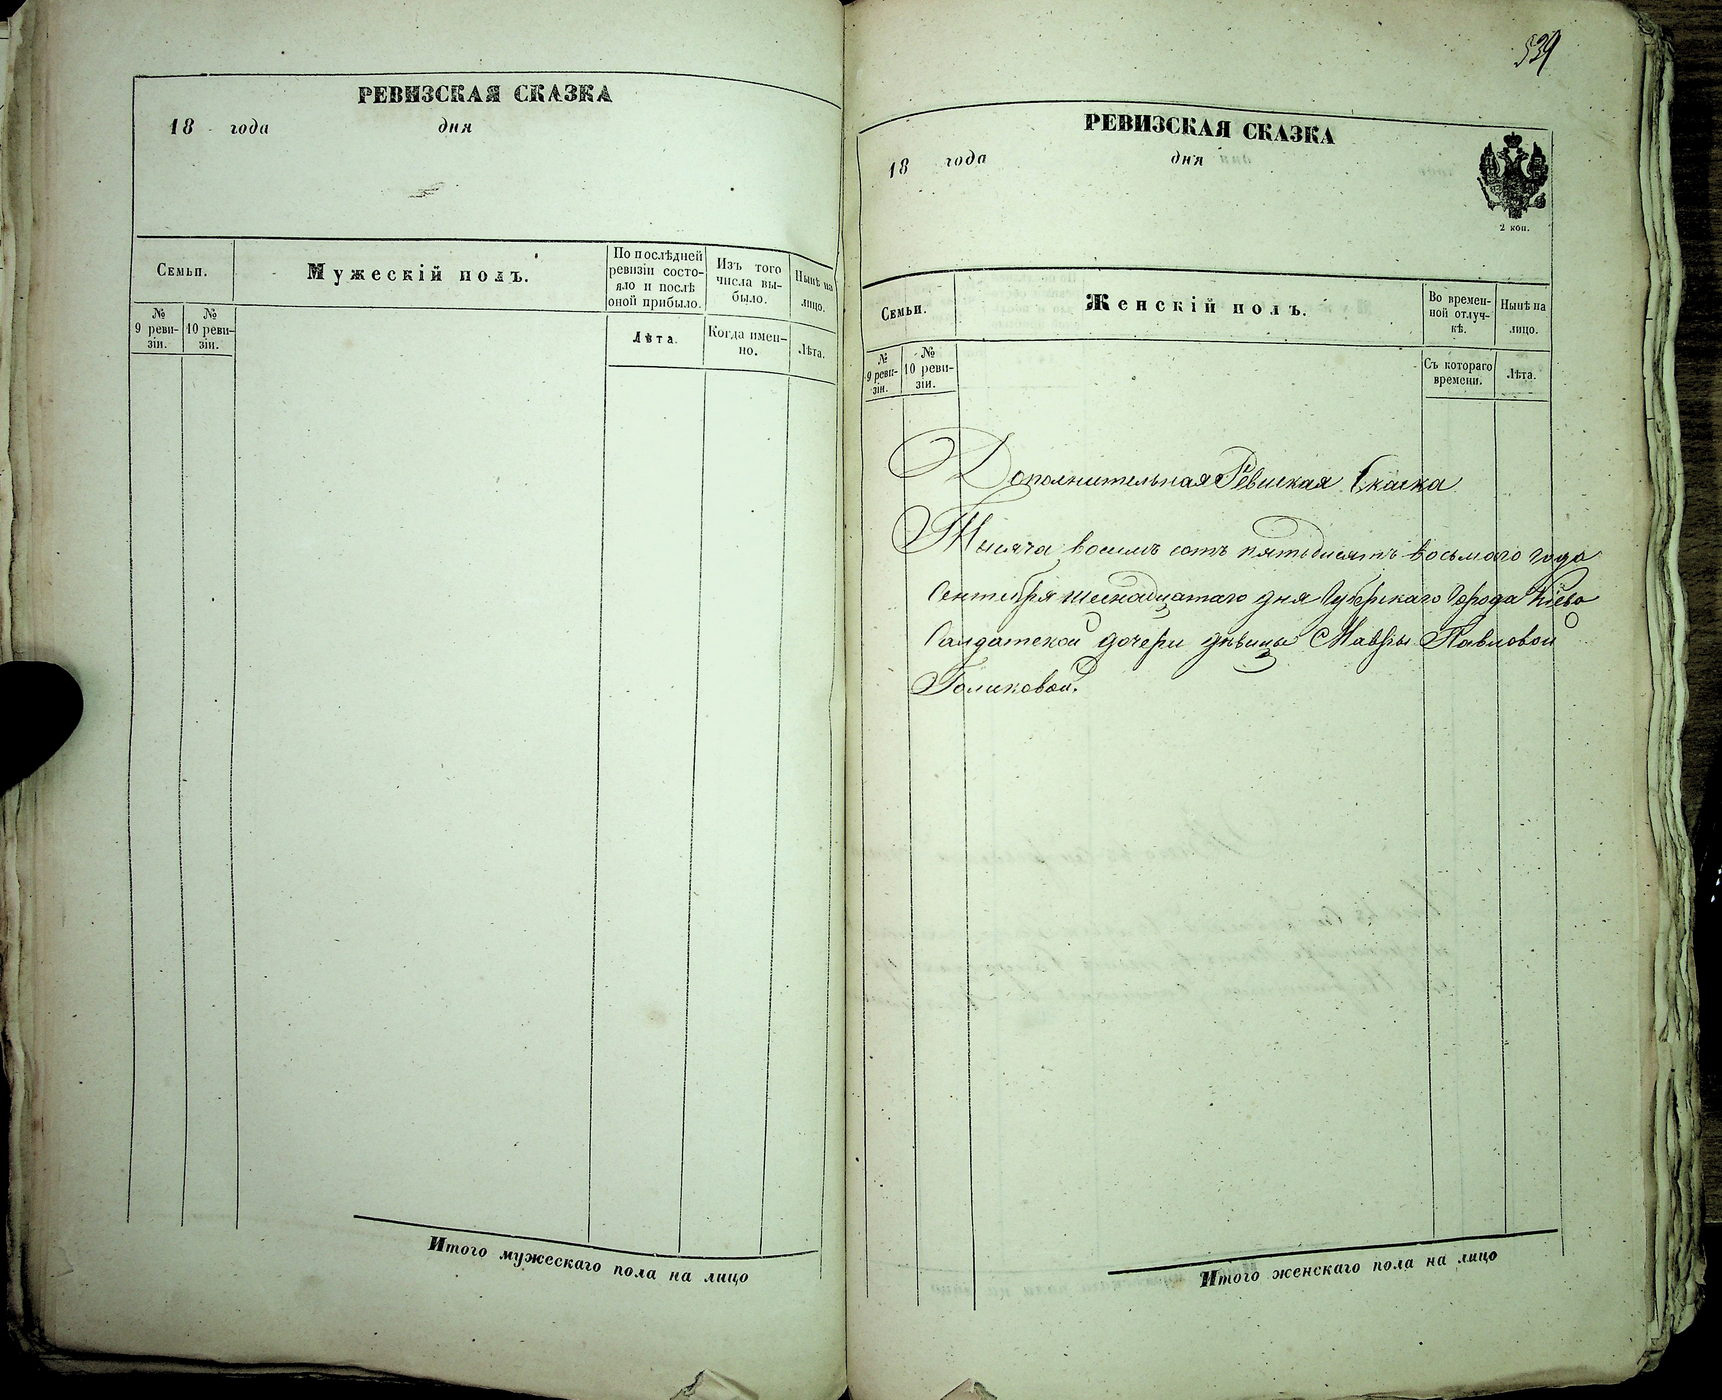 РЕВИЗСКАЯ СКАЗКА
18 года дня
Семьи.
Мужескій полъ.
По послѣдней
ревизіи состо-
яло и послѣ
оной прибыло.
Изъ того
числа вы-
было.
Нынѣ на
лицо.
№
9 реви-
зіи.
№
10 реви-
зіи.
Лѣта.
Когда имен-
но.
Лѣта.
Итого мужескаго пола на лицо
539
РЕВИЗСКАЯ СКАЗКА
18 года дня
2 коп.
Семьи.
Женскій полъ.
Во времен-
ной отлуч-
кѣ.
Нынѣ на
лицо.
№
9 реви-
зіи.
№
10 реви-
зіи.
Съ котораго
времени.
Лѣта.
Дополнительная Ревиская Скаска
Тысяча восимъ сотъ пятьдисятъ восьмого года
Сентебря шеснадцатаго дня Губерскаго Города Кіева
Салдатской дочери дѣвицы Мавры Павловой
Голиковой.
Итого женскаго пола на лицо